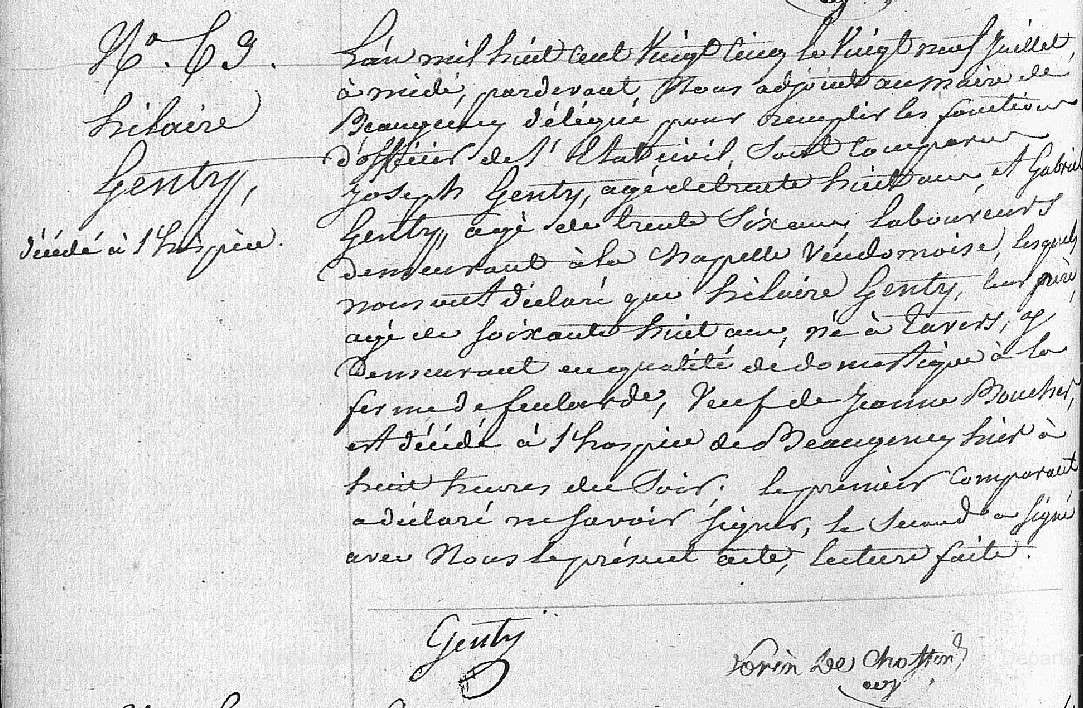 N° 69.
hilaire
Genty,
décédé à l'hospice.
L'an mil huit cent Vingt Cinq le Vingt neuf Juillet,
à midi, pardevant Nous adjoint au maire de
Beaugency délégué pour remplir les fonctions
d'officier de l'Etat civil, Sont Comparu
Joseph Genty, agé de trente huit ans, et Gabriel
Genty, agé de trente Six ans, Laboureurs
demeurant à la Chapelle Vendomoise, lesquels
nous ont déclaré que hilaire Genty, leur père,
agé de Soixante huit ans, né à Tavers, y
Demeurant en qualité de domestique à la
ferme de feularde, Veuf de Jeanne Boucher,
est décédé à l'hospice de Beaugency hier à
huit heures du Soir; le premier Comparant
a déclaré ne Savoir Signer, le Second a Signé
avec Nous le présent acte, lecture faite.
Genty
Lorin De